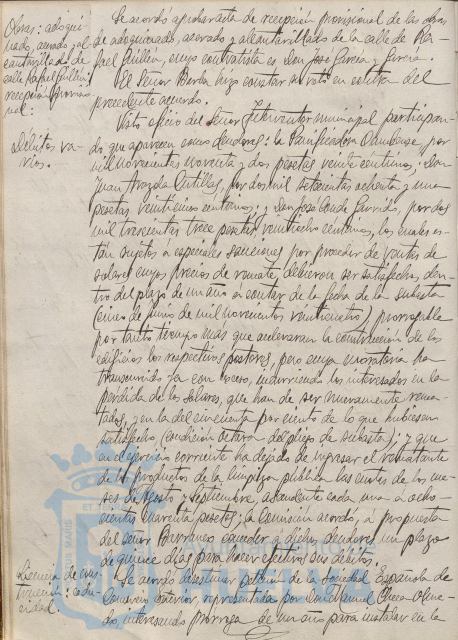 Obras: adoqui-
nado, acerado y al-
cantarillado de
calle Rafael Guillén:
recepción provisio-
nal:
Se acordó aprobar acta de recepción provisional de las obras
de adoquinado, acerado y alcantarillado de la calle de Ra-
fael Guillén, cuyo contratista es Don José García y García.
El Señor Cerda hizo constar su voto en contra del
precedente acuerdo.
Débitos va-
rios.
Visto oficio del Señor Interventor municipal participan-
do que aparecen como deudores: la Panificadora Onubense, por
mil novecientas noventa y dos pesetas veinte centimos; Don
Juan Quezada Cutillas, por dos mil setecientas ochenta y una
pesetas veinticinco centimos; y Don José Conde Garrido, por dos
mil trescientas trece pesetas veintiocho centimos, los cuales es-
tán sujetos á especiales sanciones por proceder de ventas de
solares cuyos precios de remate, debieron ser satisfechos, den-
tro del plazo de un año á contar de la fecha de la subasta
(cinco de junio de mil novecientos veinticuatro) prorrogable
por tanto tiempo más que aceleraran la construcción de los
edificios los respectivos postores, pero cuya moratoria ha
transcurrido ya con exceso, incurriendo los interesados en la
pérdida de los solares, que han de ser nuevamente rema-
tados, y en la del cincuenta por ciento de lo que hubiesen
satisfecho, (condición octava del pliego de subasta); y que
en el ejercicio corriente ha dejado de ingresar el rematante
de los productos de la limpieza pública las cuotas de los me-
ses de Agosto y Septiembre, ascendente cada una á ocho-
cientas cuarenta pesetas; la Comisión acordó, á propuesta
del Señor Barranco conceder á dichos deudores un plazo
de quince días para hacer efectivos sus débitos.
Licencia de cons-
trucción: cadu-
cidad
Se acordó desestimar petición de la Sociedad Española de
Comercio Exterior, representada por Don Manuel
do, interesando prórroga de un año para instalar en la